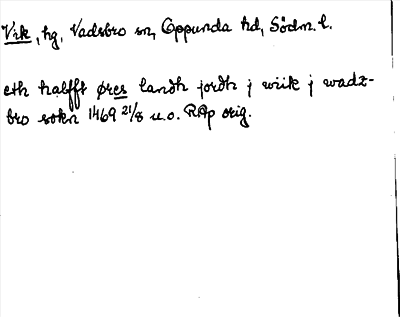 Vik, hg, Vadsbro sn, Oppunda hd, Södm. l.
eth halfft øres landh jordh j wiik j wadz-
bro sokn 1469 21/8 u.o. RAp orig.